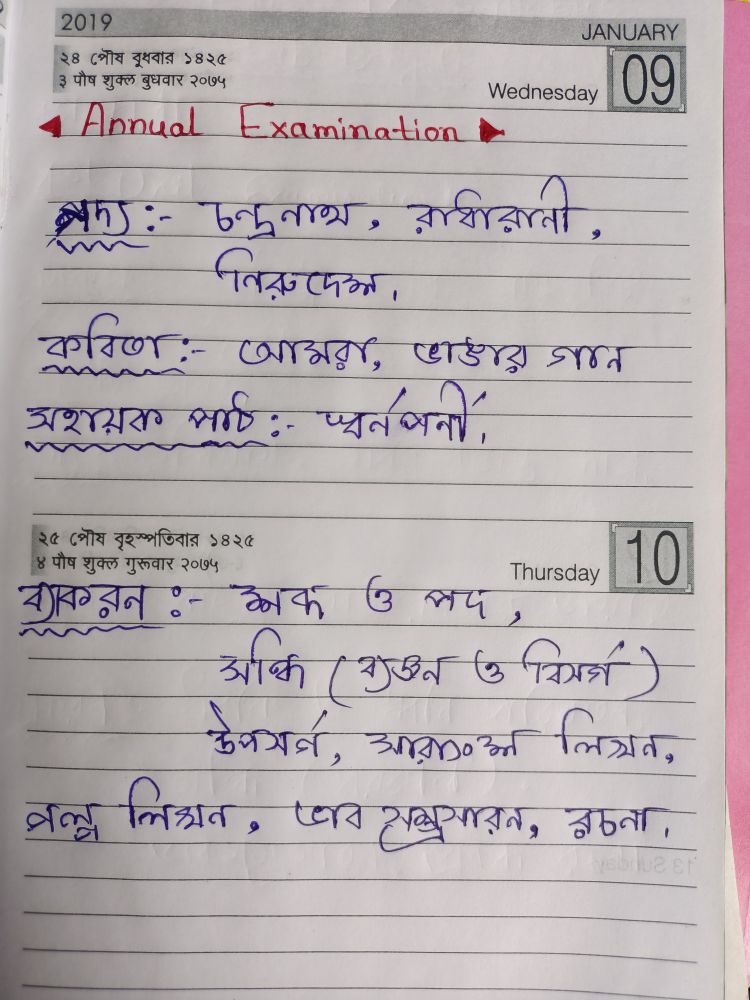 2019
JANUARY
২৪ পৌষ বুধবার ১৪২৫
৩ পৌষ শুক্ল বুধবার ২০৭৫
Wednesday 09
Annual Examination
গদ্য :- চন্দ্রনাথ, রাধারানী,
নিরুদেশ,
কবিতা :- আমরা, ভাঙার গান
সহায়ক পাঠ :- স্বর্নপর্নী,
২৫ পৌষ বৃহস্পতিবার ১৪২৫
৪ পৌষ শুক্ল গুরুবার ২০৭৫
Thursday 10
ব্যাকরন :- শব্দ ও পদ,
সন্ধি (ব্যঞ্জন ও বিসর্গ)
উপসর্গ, সারাংশ লিখন,
গল্প লিখন, ভাব সম্প্রসারন, রচনা,
13 Sunday